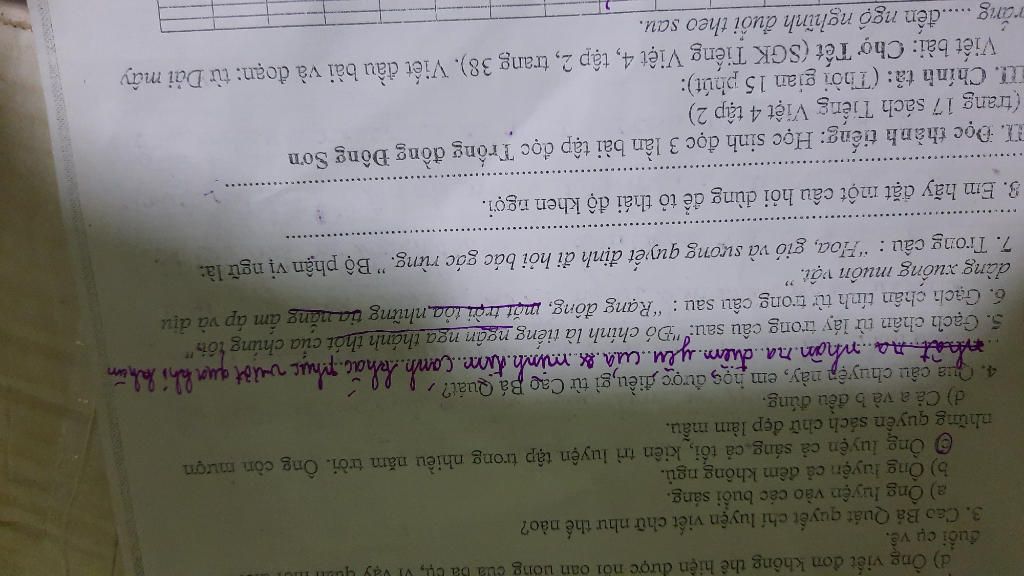 d) Ông viết đơn không thể hiện được nỗi oan uổng của bà cụ, vì vậy quan
đuổi cụ về.
3. Cao Bá Quát quyết chí luyện viết chữ như thế nào?
a) Ông luyện vào các buổi sáng.
b) Ông luyện cả đêm không ngủ.
c) Ông luyện cả sáng cả tối, kiên trì luyện tập trong nhiều năm trời. Ông còn mượn
những quyển sách chữ đẹp làm mẫu.
d) Cả a và b đều đúng.
4. Qua câu chuyện này, em học được điều gì từ Cao Bá Quát?
phát na nhận ra điểm yếu của mình kiên khắc phục vượt qua khó khăn
5. Gạch chân từ láy trong câu sau: "Đó chính là tiếng ngân nga thánh thót của chúng tớ"
6. Gạch chân tính từ trong câu sau : "Rạng đông, mặt trời tỏa những tia nắng ấm áp và dịu
dàng xuống muôn vật."
7. Trong câu : "Hoa, gió và sương quyết định đi hỏi bác gác rừng." Bộ phận vị ngữ là:
8. Em hãy đặt một câu hỏi dùng để tỏ thái độ khen ngợi.
II. Đọc thành tiếng: Học sinh đọc 3 lần bài tập đọc Trống đồng Đông Sơn
(trang 17 sách Tiếng Việt 4 tập 2)
III. Chính tả: (Thời gian 15 phút):
Viết bài: Chợ Tết (SGK Tiếng Việt 4, tập 2, trang 38). Viết đầu bài và đoạn: từ Dải mây
trắng .....đến ngộ nghĩnh đuổi theo sau.